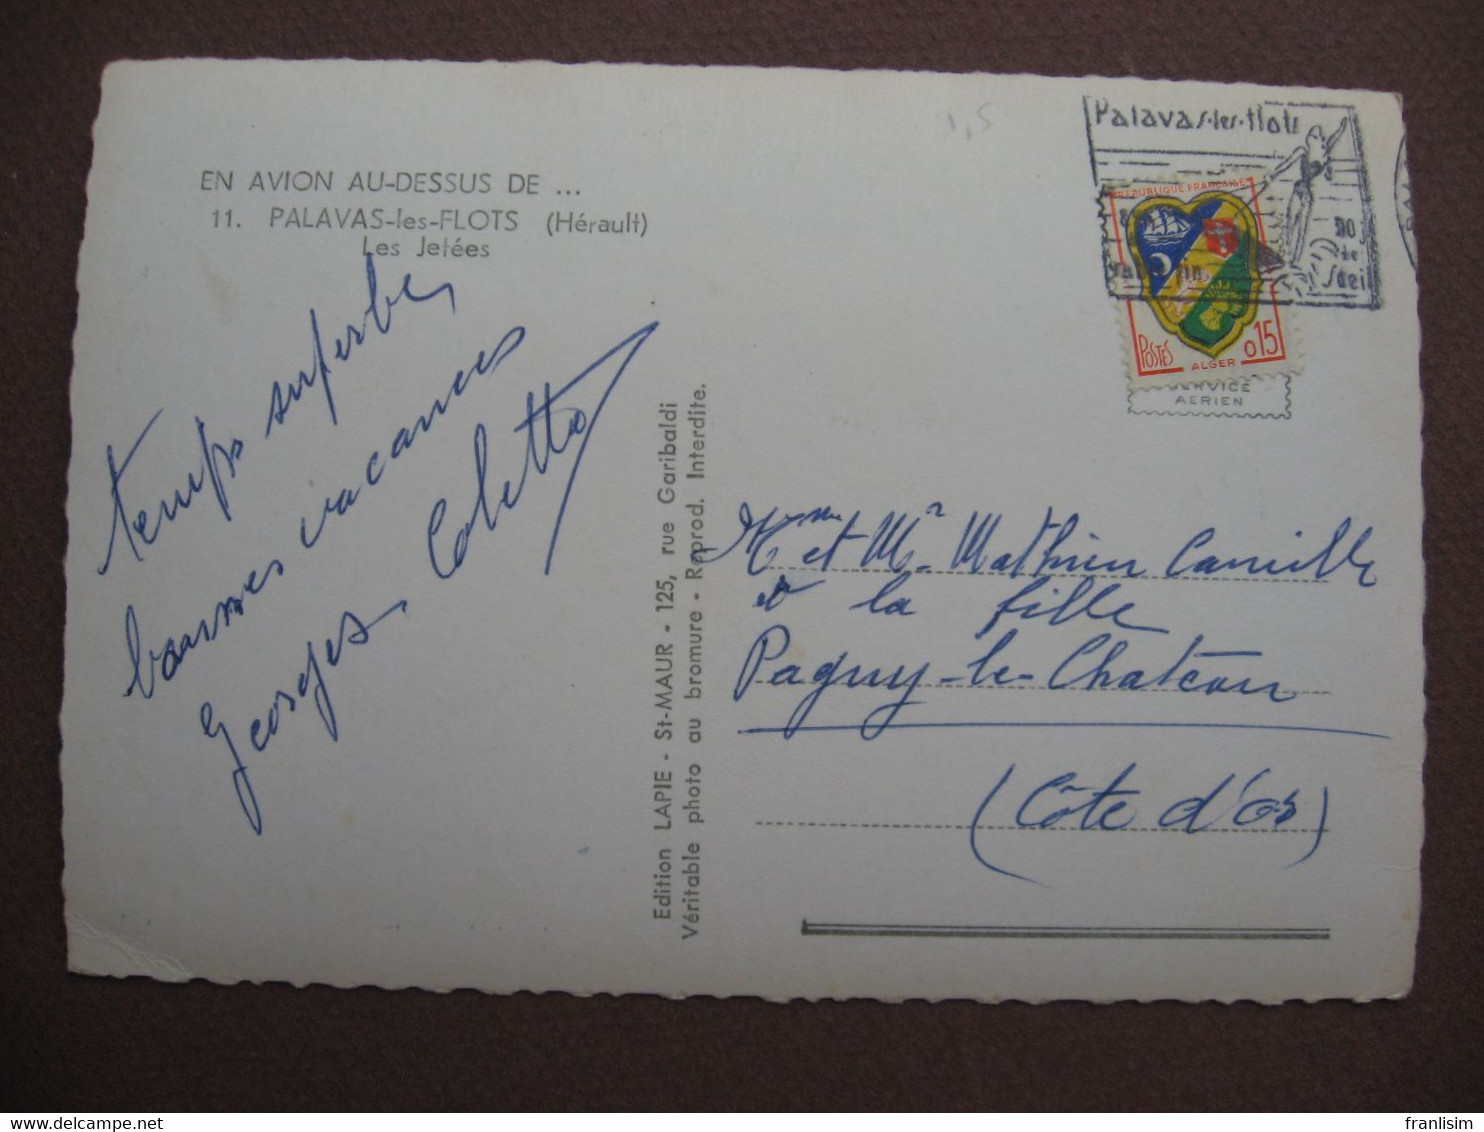 1,5
EN AVION AU-DESSUS DE ...
11. PALAVAS-les-FLOTS (Hérault)
Les Jetées
temps superbe,
bonnes vacances
Georges. Colette
Edition LAPIE - St-MAUR - 125, rue Garibaldi
Véritable photo au bromure - Reprod. Interdite.
Palavas-les-flots
REPUBLIQUE FRANÇAISE
POSTES
ALGER
0,15
SERVICE
AERIEN
Mme et Mr Mathieu Camille
et la fille
Pagny-le-Chateau
(Côte d'or)
franlisim
delcampe.net